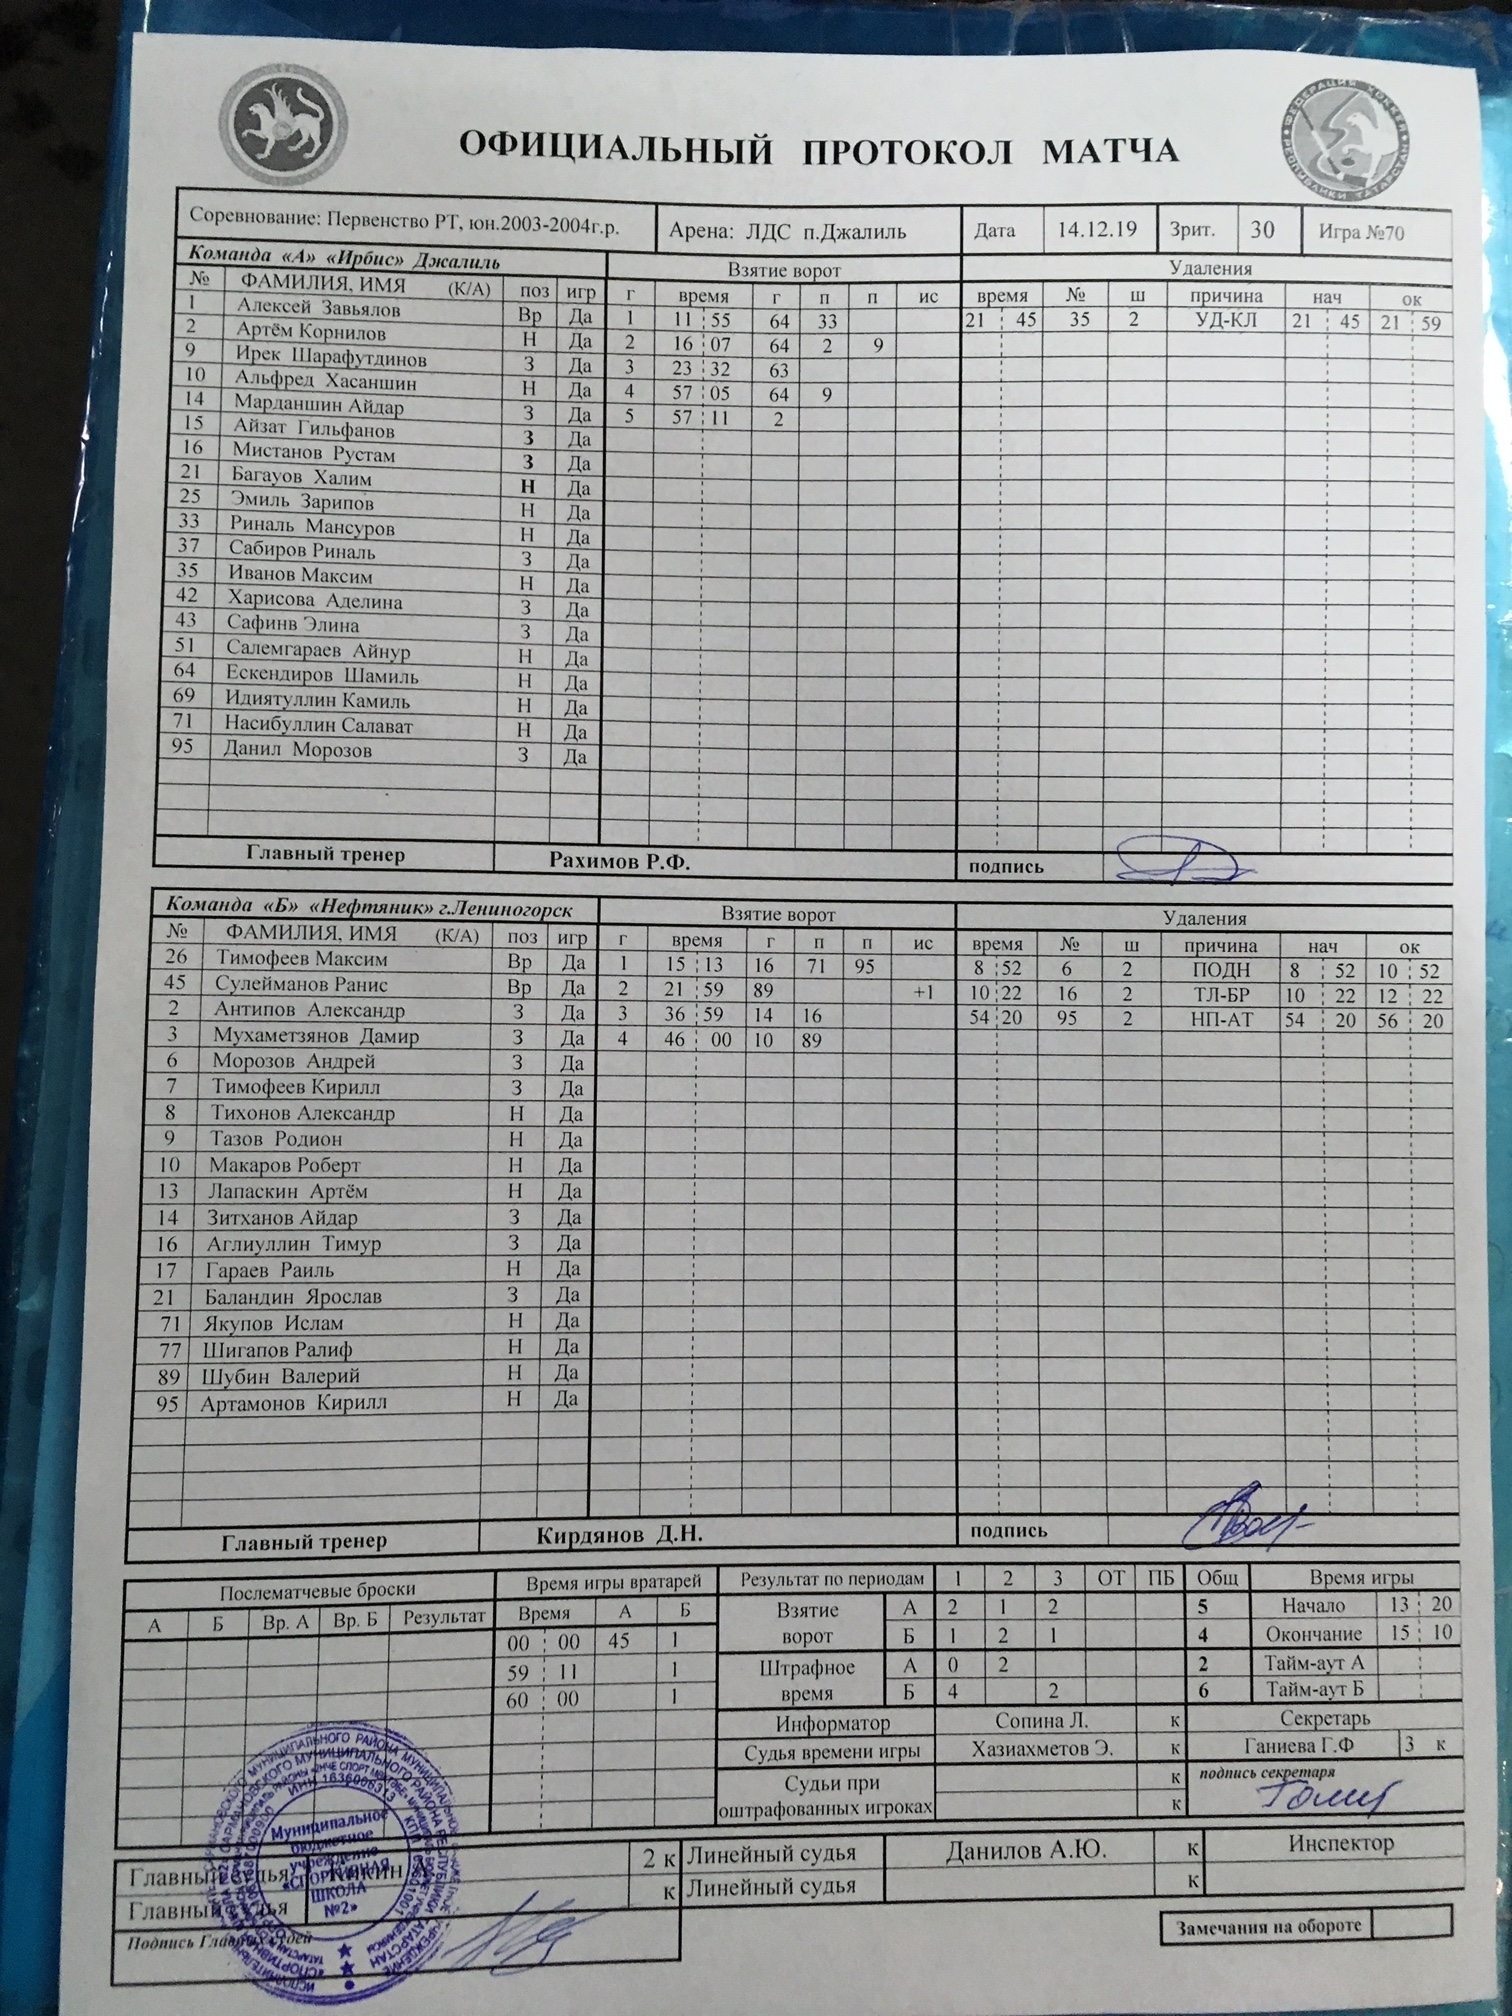 ОФИЦИАЛЬНЫЙ ПРОТОКОЛ МАТЧА
Соревнование: Первенство РТ, юн.2003-2004г.р. Арена: ЛДС п.Джалиль Дата 14.12.19 Зрит. 30 Игра №70
Команда «А» «Ирбис» Джалиль Взятие ворот Удаления
№ ФАМИЛИЯ, ИМЯ (К/А) поз игр г время г п п ис время № ш причина нач ок
1 Алексей Завьялов Вр Да 1 11 55 64 33 21 45 35 2 УД-КЛ 21 45 21 59
2 Артём Корнилов Н Да 2 16 07 64 2 9
9 Ирек Шарафутдинов З Да 3 23 32 63
10 Альфред Хасаншин Н Да 4 57 05 64 9
14 Марданшин Айдар З Да 5 57 11 2
15 Айзат Гильфанов З Да
16 Мистанов Рустам З Да
21 Багауов Халим Н Да
25 Эмиль Зарипов Н Да
33 Риналь Мансуров Н Да
37 Сабиров Риналь З Да
35 Иванов Максим Н Да
42 Харисова Аделина З Да
43 Сафинв Элина З Да
51 Салемгараев Айнур Н Да
64 Ескендиров Шамиль Н Да
69 Идиятуллин Камиль Н Да
71 Насибуллин Салават Н Да
95 Данил Морозов З Да
Главный тренер Рахимов Р.Ф. подпись
Команда «Б» «Нефтяник» г.Лениногорск Взятие ворот Удаления
№ ФАМИЛИЯ, ИМЯ (К/А) поз игр г время г п п ис время № ш причина нач ок
26 Тимофеев Максим Вр Да 1 15 13 16 71 95 8 52 6 2 ПОДН 8 52 10 52
45 Сулейманов Ранис Вр Да 2 21 59 89 +1 10 22 16 2 ТЛ-БР 10 22 12 22
2 Антипов Александр З Да 3 36 59 14 16 54 20 95 2 НП-АТ 54 20 56 20
3 Мухаметзянов Дамир З Да 4 46 00 10 89
6 Морозов Андрей З Да
7 Тимофеев Кирилл З Да
8 Тихонов Александр Н Да
9 Тазов Родион Н Да
10 Макаров Роберт Н Да
13 Лапаскин Артём Н Да
14 Зитханов Айдар З Да
16 Аглиуллин Тимур З Да
17 Гараев Раиль Н Да
21 Баландин Ярослав З Да
71 Якупов Ислам Н Да
77 Шигапов Ралиф Н Да
89 Шубин Валерий Н Да
95 Артамонов Кирилл Н Да
Главный тренер Кирдянов Д.Н. подпись
Послематчевые броски Время игры вратарей Результат по периодам 1 2 3 ОТ ПБ Общ Время игры
А Б Вр. А Вр. Б Результат Время А Б Взятие ворот А 2 1 2 5 Начало 13 20
00 00 45 1 Б 1 2 1 4 Окончание 15 10
59 11 1 Штрафное время А 0 2 2 Тайм-аут А
60 00 1 Б 4 2 6 Тайм-аут Б
Информатор Сопина Л. к Секретарь
Судья времени игры Хазиахметов Э. к Ганиева Г.Ф 3 к
Судьи при оштрафованных игроках к подпись секретаря
к
Главный судья Кикин А. 2 к Линейный судья Данилов А.Ю. к Инспектор
Главный судья к Линейный судья к
Подпись Главных судей
Замечания на обороте
Муниципальное
бюджетное
учреждение
«СПОРТИВНАЯ
ШКОЛА
№2»